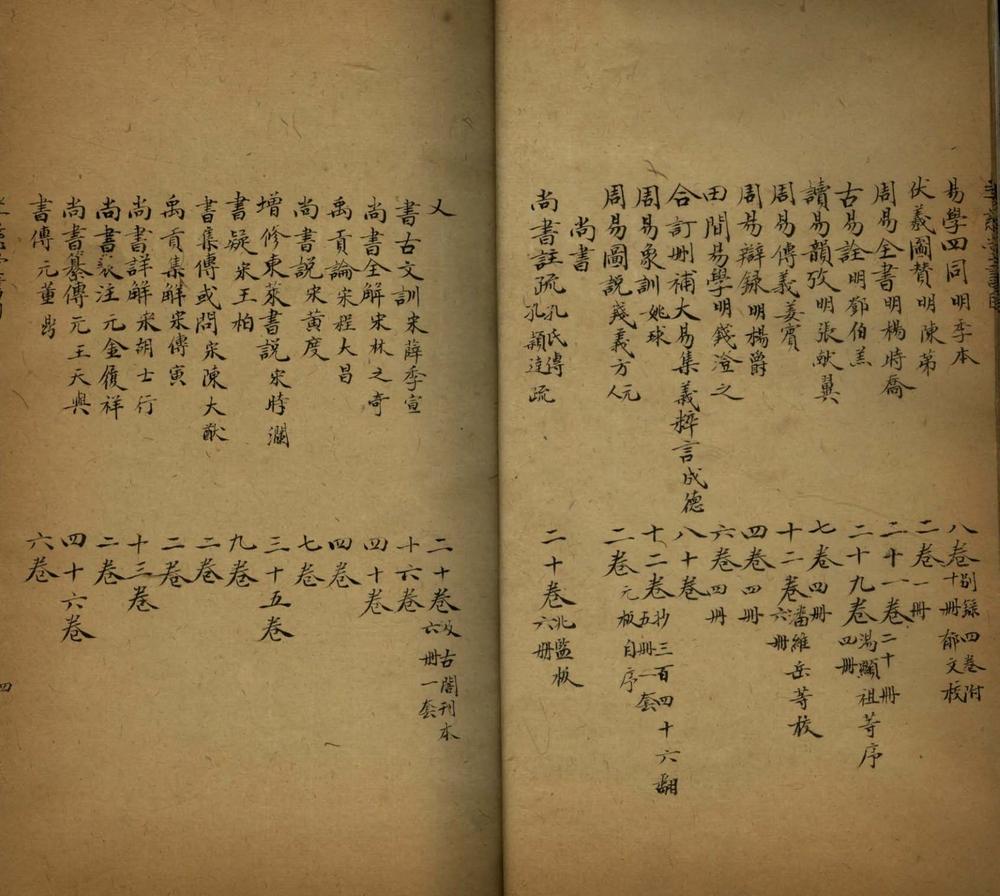 易學四同明季本 八卷別錄四卷附十冊郁文校
伏羲圖贊明陳第 二卷一冊
周易全書明楊時喬 二十一卷二十冊
古易詮明鄧伯羔 二十九卷湯顯祖等序四冊
讀易韻攷明張献翼 七卷四冊
周易傳義姜寳 十二卷潘維岳等校六冊
周易辯録明楊爵 四卷四冊
田間易學明錢澄之 六卷四冊
合訂刪補大易集義粹言成德 八十卷
周易象訓姚球 十二卷抄三百四十六翻五冊一套
周易圖說錢義方元人 二卷元板自序
尚書
尚書註疏孔氏傳孔頴達疏 二十卷北監板六冊
又 二十卷汲古閣刊本六冊一套
書古文訓宋薛季宣 十六卷
尚書全解宋林之奇 四十卷
禹貢論宋程大昌 四卷
尚書說宋黄度 七卷
增修東萊書説宋時瀾 三十五卷
書疑宋王柏 九卷
書集傳或問宋陳大猷 二卷
禹貢集觧宋傅寅 二卷
尚書詳解宋胡士行 十三卷
尚書表注元金履祥 二卷
尚書纂傳元王天與 四十六卷
書傳元董鼎 六卷
四